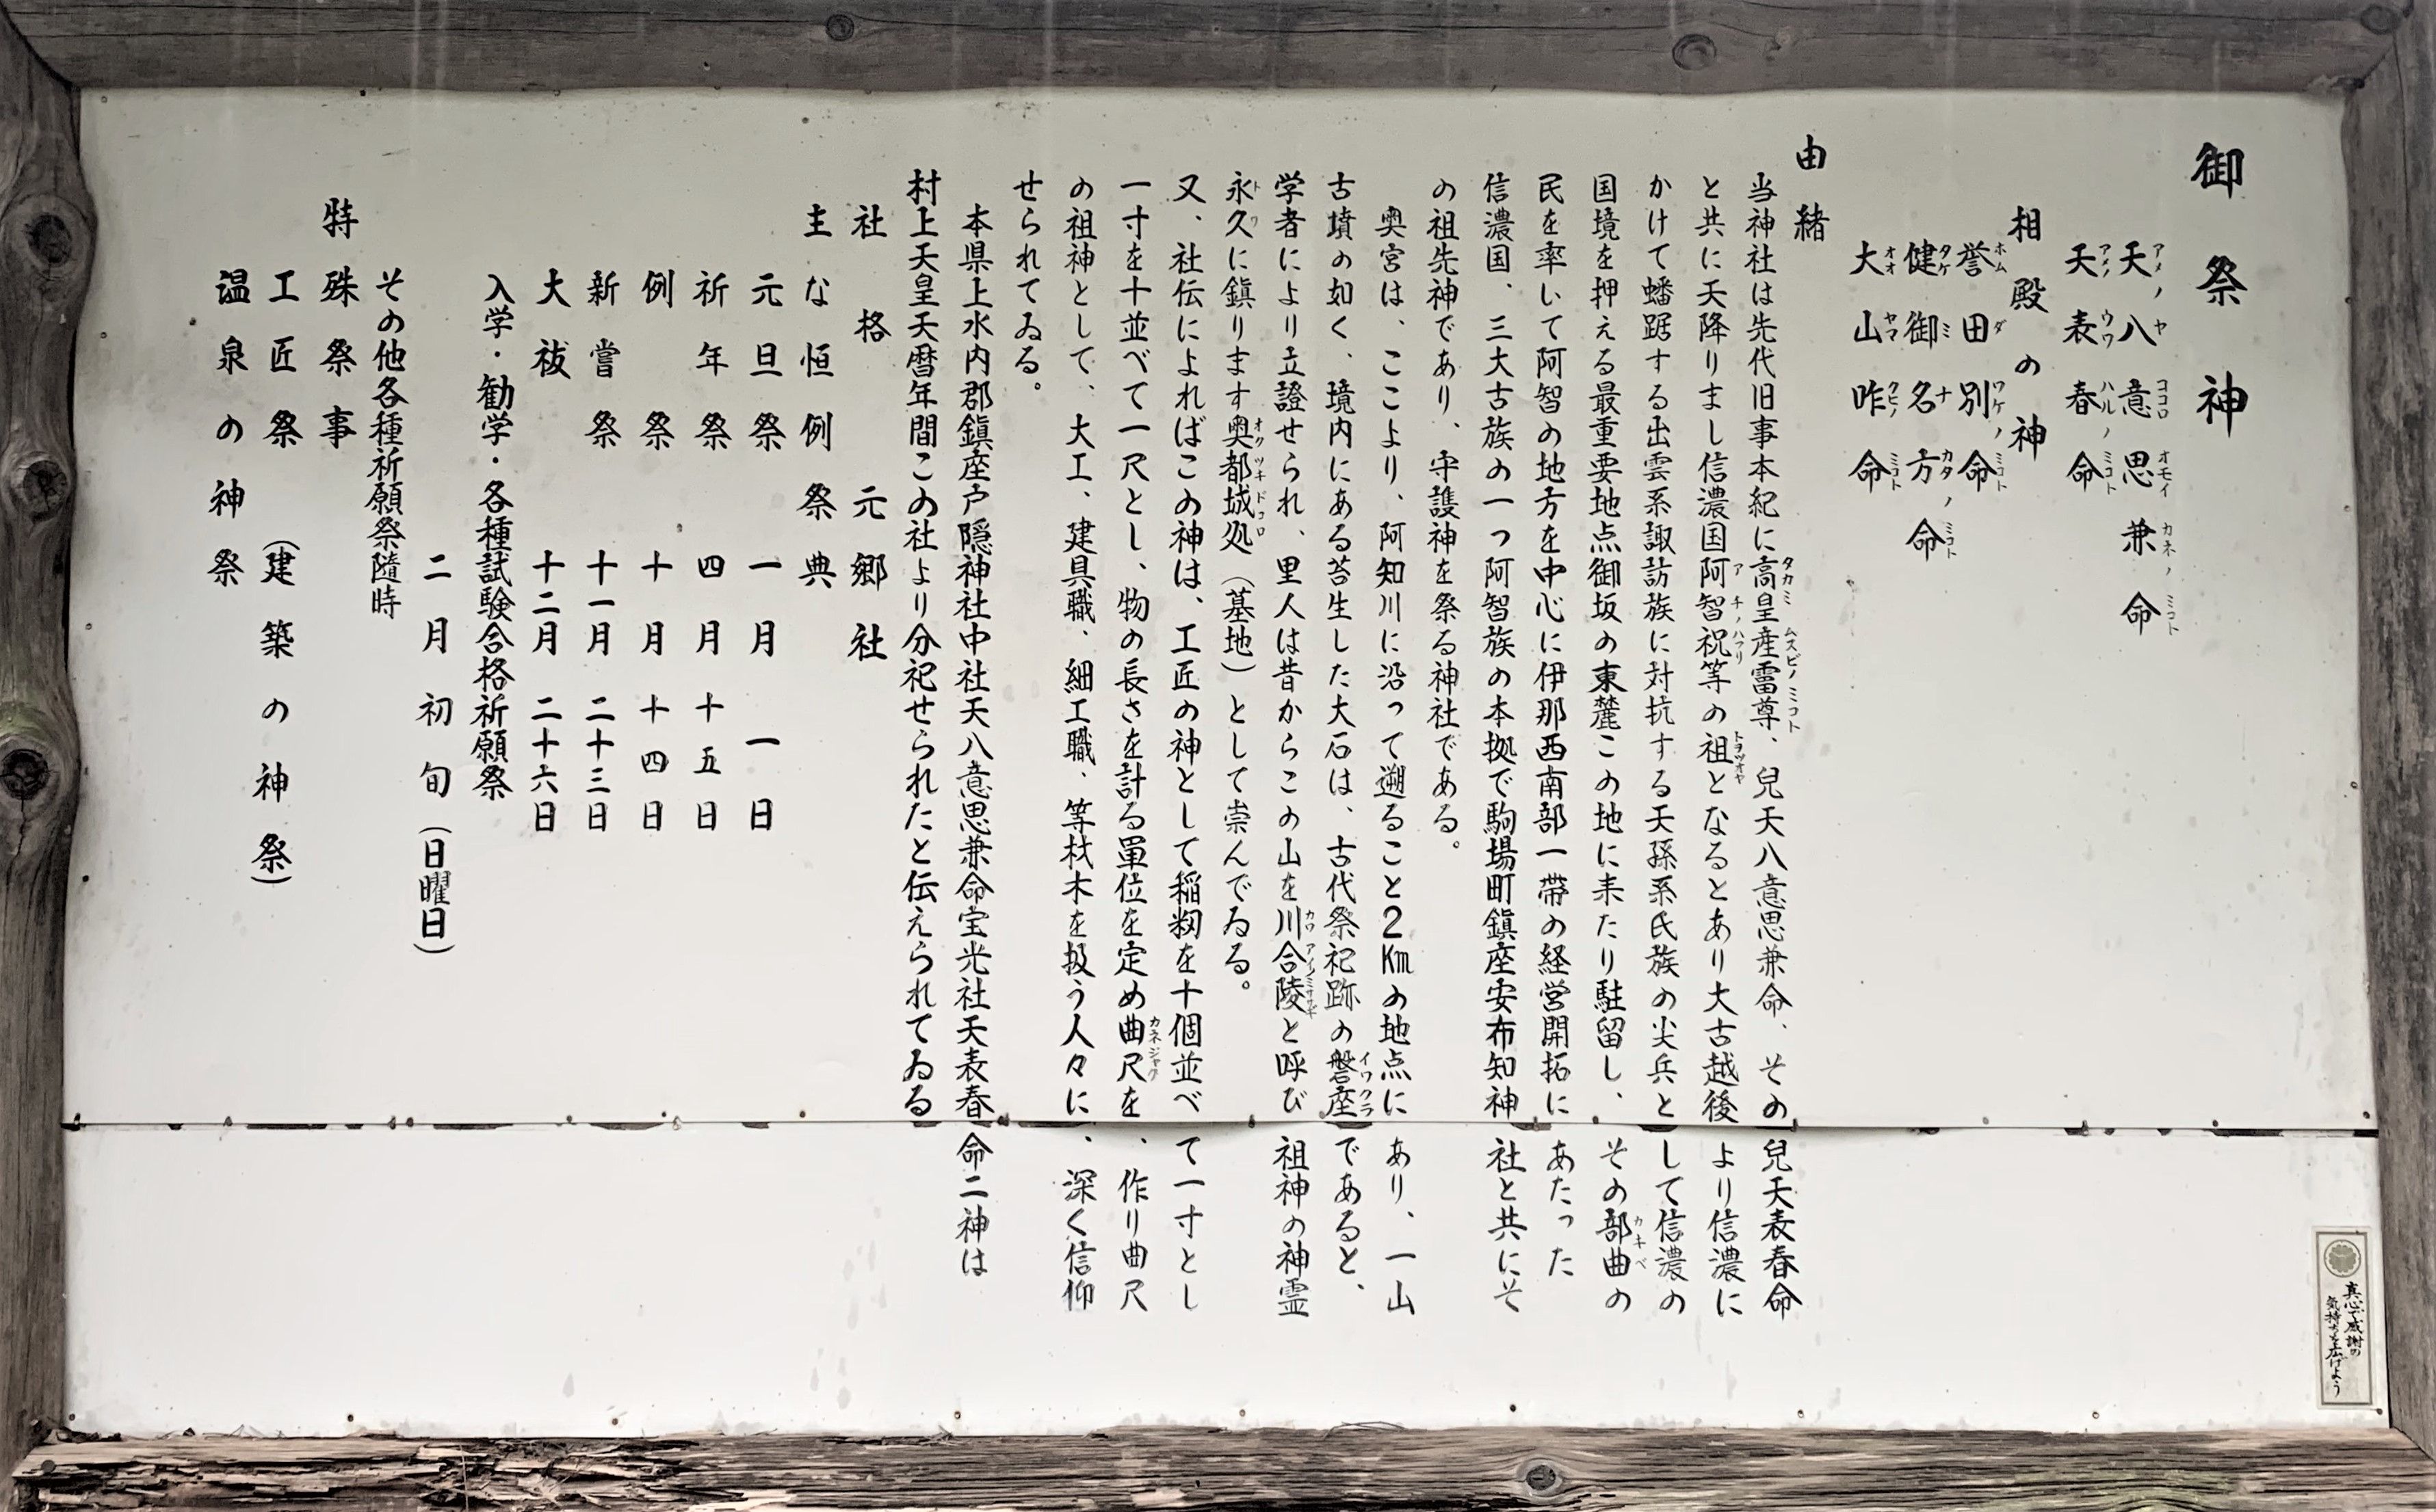 御祭神
天八意思兼命
アメノヤココロオモイカネノミコト
天表春命
アメノウワハルノミコト
相殿の神
誉田別命
ホムダワケノミコト
健御名方命
タケミナカタノミコト
大山咋命
オオヤマクヒノミコト
由緒
当神社は先代旧事本紀に高皇産雷尊、兒天八意思兼命、その兒天表春命
タカミムスビノミコト
と共に天降りまし信濃国阿智祝等の祖となるとあり大古越後より信濃に
アチノハフリ
かけて蟠踞する出雲系諏訪族に対抗する天孫系氏族の尖兵として信濃の
国境を押える最重要地点御坂の東麓この地に来たり駐留し、その部曲の
カキベ
民を率いて阿智の地方を中心に伊那西南部一帯の経営開拓にあたった
信濃国、三大古族の一つ阿智族の本拠で駒場町鎮座安布知神社と共にそ
の祖先神であり、守護神を祭る神社である。
奥宮は、ここより、阿知川に沿って遡ること2Kmの地点にあり、一山
古墳の如く、境内にある苔生した大石は、古代祭祀跡の磐座であると、
イワクラ
学者により立證せられ、里人は昔からこの山を川合陵と呼び祖神の神霊
カワアイノミササギ
永久に鎮ります奥都城処(墓地)として崇んでゐる。
トワ
オクツキドコロ
又、社伝によればこの神は、工匠の神として稲籾を十個並べて一寸とし
一寸を十並べて一尺とし、物の長さを計る單位を定め曲尺を、作り曲尺
カネジャク
の祖神として、大工、建具職、細工職、等材木を扱う人々に、深く信仰
せられてゐる。
本県上水内郡鎮座戸隠神社中社天八意思兼命宝光社天表春命二神は
村上天皇天暦年間この社より分祀せられたと伝えられてゐる
社格 元郷社
主な恒例祭典
元旦祭 一月 一日
祈年祭 四月十五日
例祭 十月十四日
新嘗祭 十一月二十三日
大祓 十二月二十六日
入学・勧学・各種試験合格祈願祭
二月初旬(日曜日)
その他各種祈願祭随時
特殊祭事
工匠祭(建築の神祭)
温泉の神祭
真心で感謝の
気持ちを広げよう